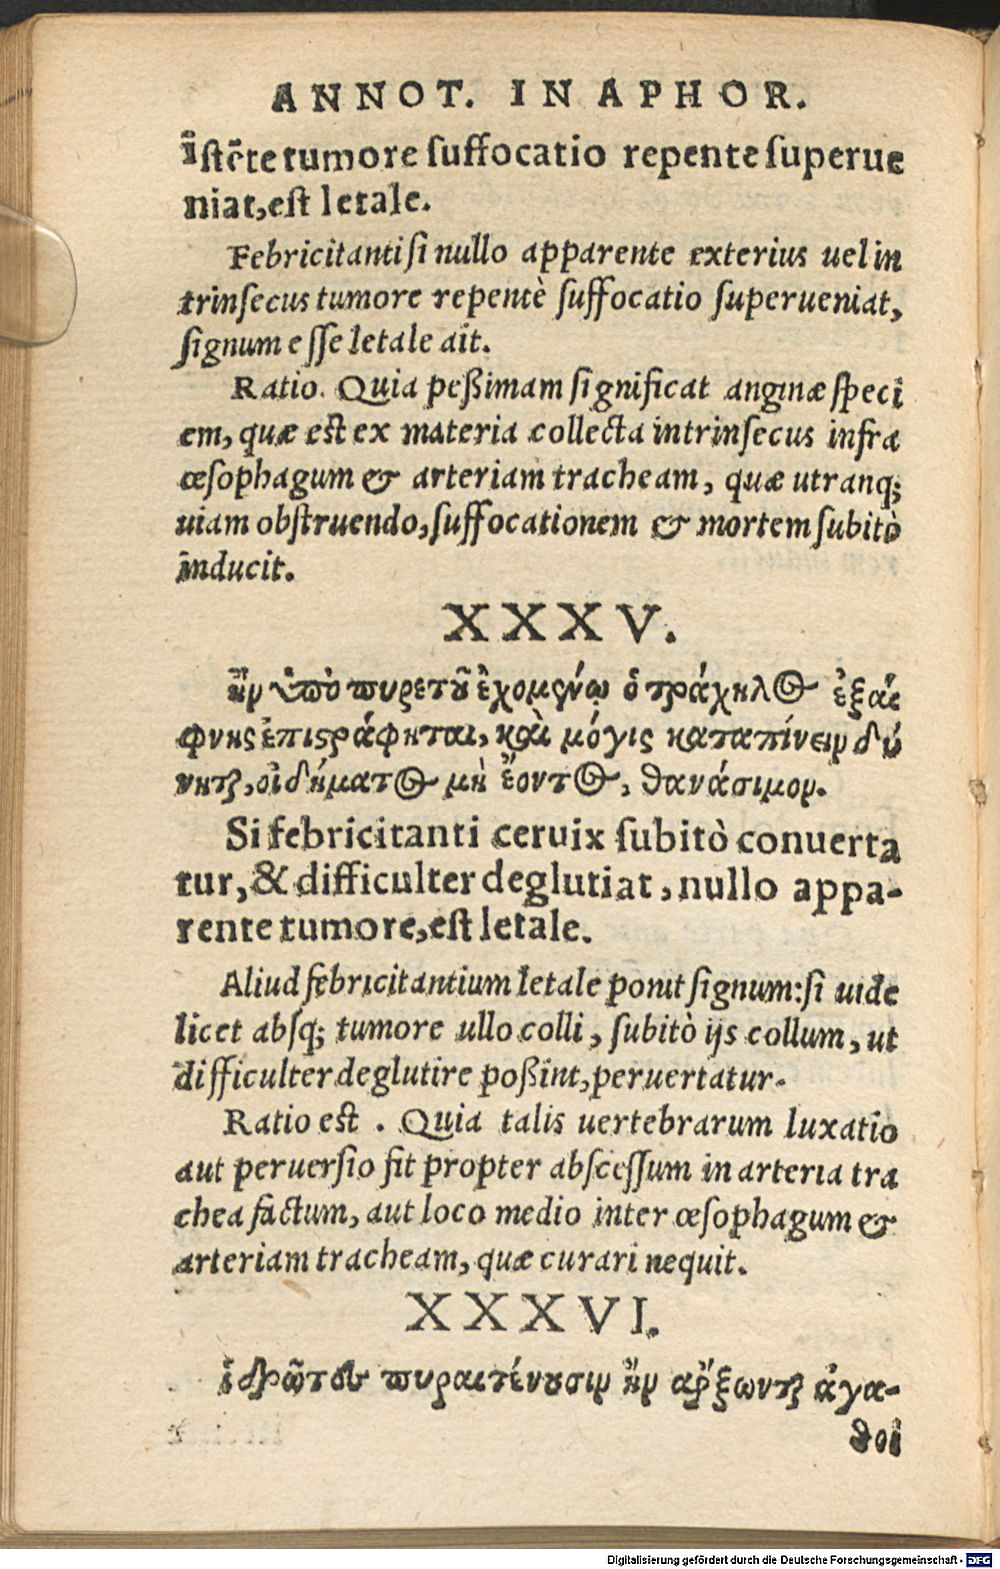 ANNOT. IN APHOR.
iſtẽte tumore ſuffocatio repente ſuperue
niat, eſt letale.
Febricitanti ſi nullo apparente exterius uel in
trinſecus tumore repentè ſuffocatio ſuperueniat,
ſignum eſſe letale ait.
Ratio. Quia peßimam ſignificat anginæ ſpeci
em, quæ eſt ex materia collecta intrinſecus infra
œſophagum & arteriam tracheam, quæ utranq;
uiam obſtruendo, ſuffocationem & mortem ſubitò
inducit.
XXXV.
ἢν ὑπὸ πυρετοῦ ἐχομένῳ ὁ τράχηλος ἐξαί
φνης ἐπιστράφηται, καὶ μόγις καταπίνειν δύ
νηται, οἰδήματος μὴ ἐόντος, θανάσιμον.
Si febricitanti ceruix ſubitò conuerta
tur, & difficulter deglutiat, nullo appa-
rente tumore, eſt letale.
Aliud febricitantium letale ponit ſignum: ſi uide
licet abſq; tumore ullo colli, ſubitò ijs collum, ut
difficulter deglutire poßint, peruertatur.
Ratio eſt. Quia talis uertebrarum luxatio
aut peruerſio fit propter abſceſſum in arteria tra
chea factum, aut loco medio inter œſophagum &
arteriam tracheam, quæ curari nequit.
XXXVI.
ἱδρῶτες πυραιτένουσιν ἢν ἄρξωνται ἀγα-
θοὶ
Digitalisierung gefördert durch die Deutsche Forschungsgemeinschaft - DFG